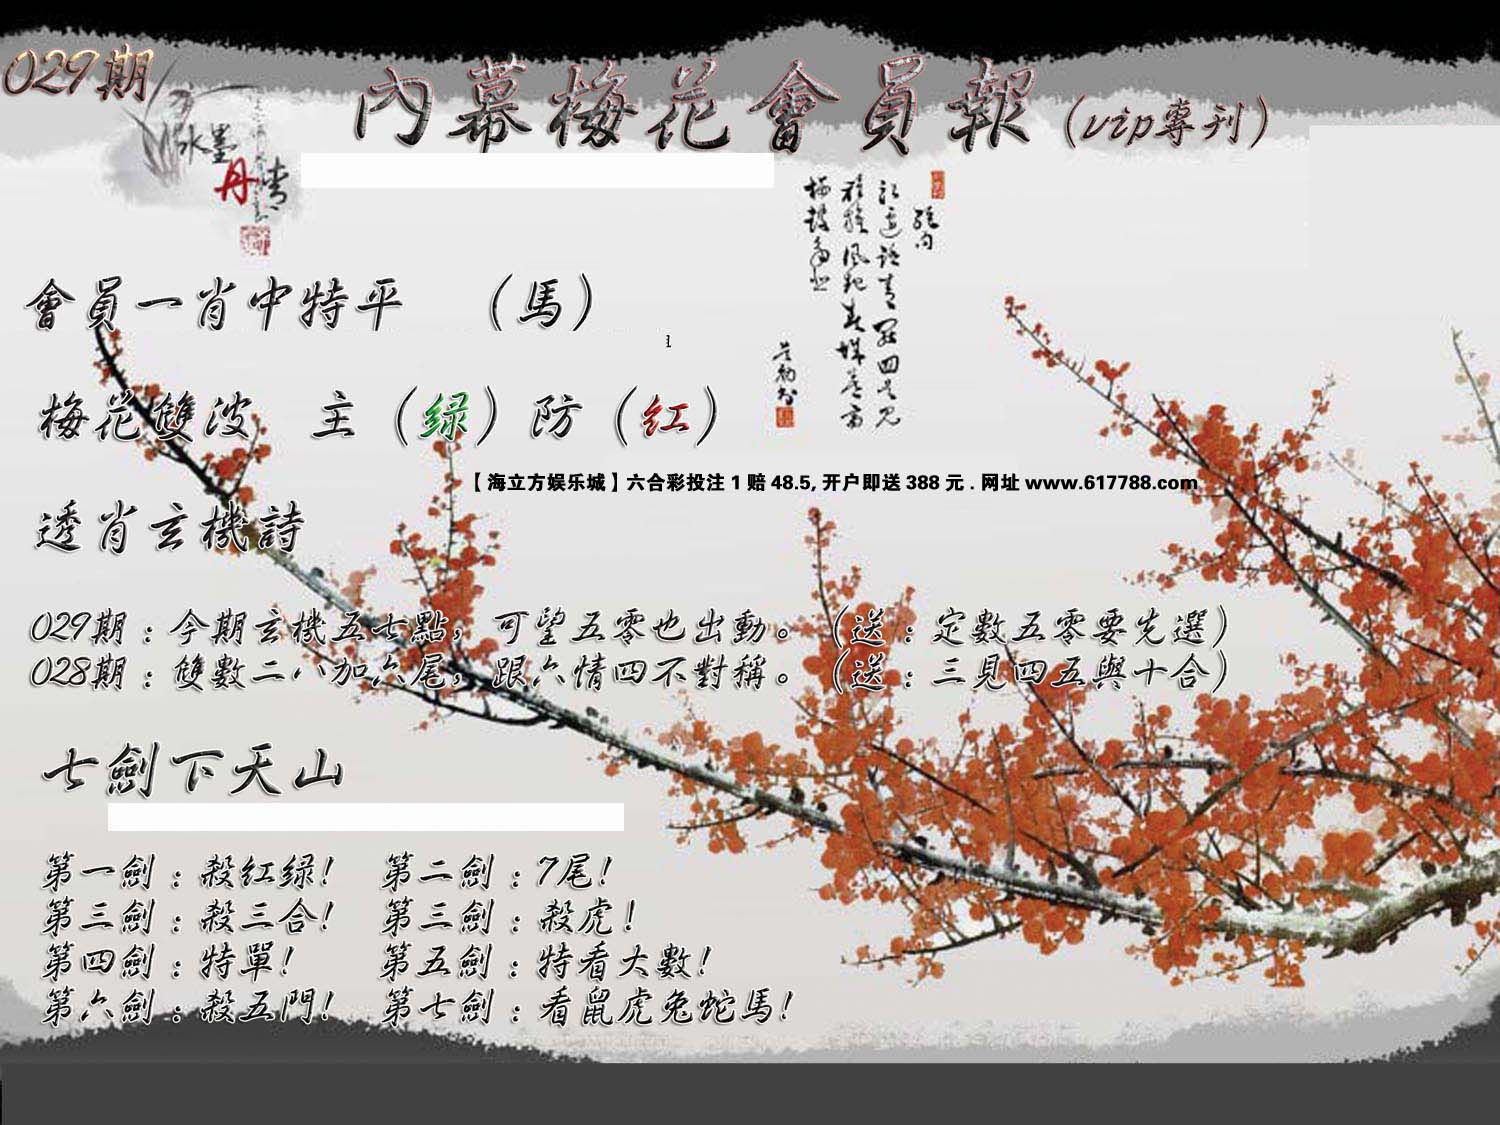 029期
內幕梅花會員報（vip專刊）
水墨
丹青
會員一肖中特平　（馬）
梅花雙波　主（绿）防（红）
【海立方娱乐城】六合彩投注1赔48.5,开户即送388元.网址www.617788.com
透肖玄機詩
029期：今期玄機五七點，可望五零也出動。（送：定數五零要先選）
028期：雙數二八加六尾，跟六情四不對稱。（送：三見四五與十合）
七劍下天山
第一劍：殺红绿!　第二劍：7尾!
第三劍：殺三合!　第三劍：殺虎!
第四劍：特單!　第五劍：特看大數!
第六劍：殺五門!　第七劍：看鼠虎兔蛇馬!